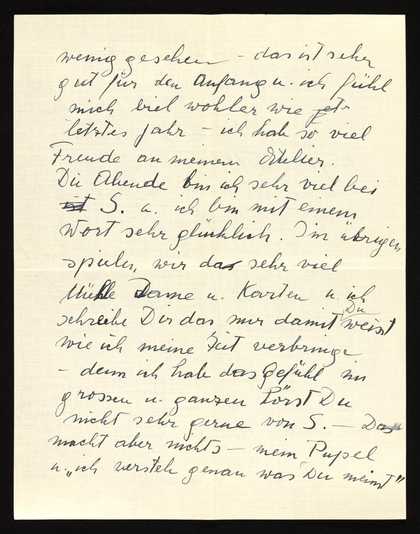 wenig gesehen – das ist sehr
gut für den Anfang u. ich fühl
mich viel wohler wie
letztes Jahr – ich hab so viel
Freude an meinem Atelier.
Die Abende bin ich sehr viel bei
S. u. ich bin mit einem
Wort sehr glücklich. Im übrigen
spielen wir das sehr viel
Mühle Dame u. Karten u. ich
schreibe Dir das nur damit Du weisst
wie ich meine Zeit verbringe
– denn ich hab das Gefühl im
grossen u. ganzen hörst Du
nicht sehr gerne von S. – Das
macht aber nichts – mein Pupsel
u. „ich versteh genau was Du meinst"